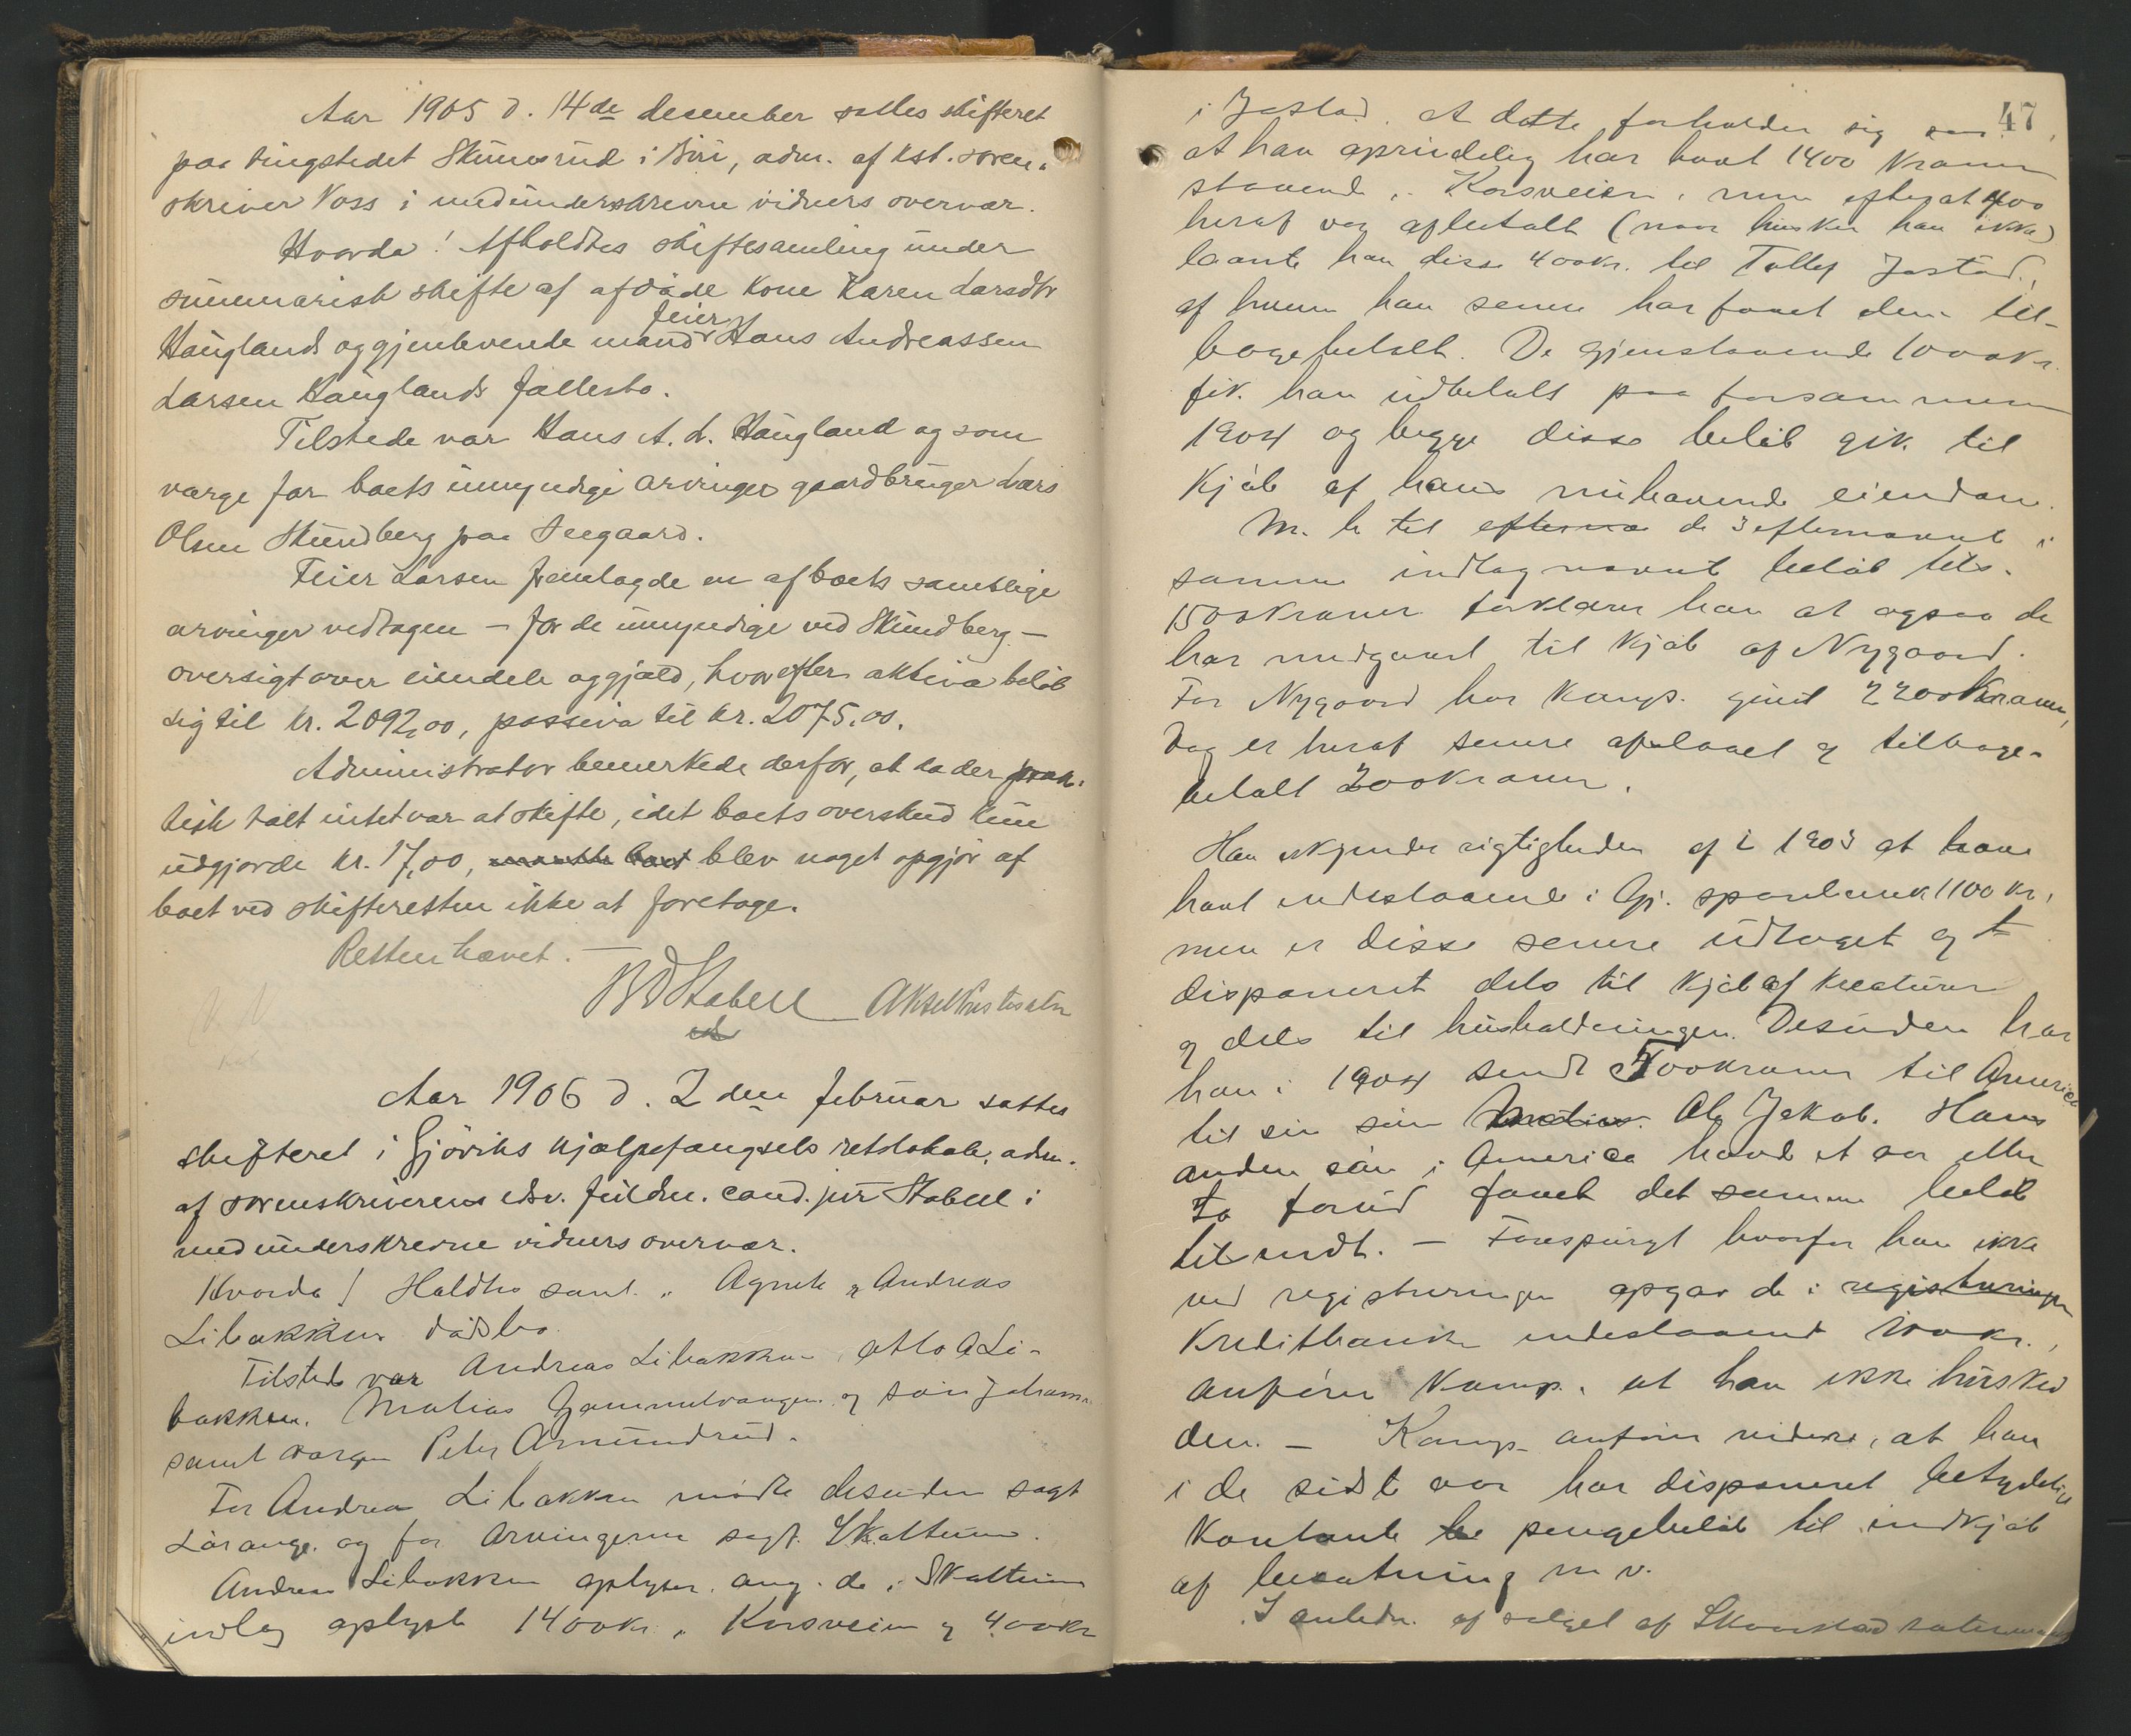 Aar 1905 d. 14de desember sattes skifteret
paa tingstedet Skumsrud i Biri, adm. af kst. soren-
skriver Voss i medunderskrevne vidners overvær.
Hvorda! Afholdtes skiftesamling under
summarisk skifte af afdøde kone Karen Larsdtr
Hauglands og gjenlevende mand feier Hans Andreassen
Larsen Hauglands fællesbo.
Tilstede var Hans A. L. Haugland og som
værge for boets umyndige arvinger gaardbruger Lars
Olsen Skundberg paa Seegaard.
Feier Larsen fremlagde en af boets samtlige
arvinger vedtagen – for de umyndige ved Skundberg –
oversigt over eiendele og gjæld, hvorefter aktiva beløb
sig til kr. 2092,00, passiva til kr. 2075,00.
Administrator bemerkede derfor, at da der prak-
tisk talt intet var at skifte, idet boets overskud kun
udgjorde kr. 17,00, blev noget opgjør af
boet ved skifteretten ikke at foretage.
Retten hævet. –
B D Stabell Aksel Kristiansen
Aar 1906 d. 2den februar sattes
skifteret i Gjøviks hjælpefængsels retslokale, adm.
af sorenskriverens edsv. fuldm. cand. jur Stabell i
medunderskrevne vidners overvær.
Hvorda! Holdtes saml. i Agnete & Andreas
Libakkens dødsbo.
Tilstede var Andreas Libakken, Otto A Li-
bakken, Matias Gammelvangen og søn Johann
samt værgen Peter Amundrud.
For Andreas Libakken mødte desuden sagf
Lørange og for arvingerne sagf. Skattum.
Andreas Libakken oplyser ang. de i Skattums
indlæg oplyste 1400 kr. i Korsveien & 400 kr
47
i Jastad. At dette forholder sig saa
at han oprindelig har havt 1400 kroner
staaende i Korsveien, men efterat 400
heraf var afbetalt (naar husker han ikke)
laante han disse 400 kr. til Tollef Jastad,
af hvem han senere har faaet dem til-
bagebetalt. De gjenstaaende 1000 kr.
fik han udbetalt paa forsommeren
1904 og begge disse beløb gik til
kjøb af hans nuhavende eiendom.
M. h. til efterna de 3 efternævnte i
samme indlæg nævnte beløb tils.
1500 kroner forklarer han at ogsaa de
har medgaaet til kjøb af Nygaard.
For Nygaard har Komp. givet 2200 kroner,
dog er heraf senere afslaaet og tilbage-
betalt 200 kroner.
Han erkjender rigtigheden af i 1903 at have
havt indestaaende i Gj. sparebank 1100 kr,
men er disse senere udtaget og
disponeret dels til kjøb af kreaturer
og dels til husholdningen. Desuden har
han i 1904 sendt 500 kroner til America
til sin søn Matias. Ole Jakob. Hans
anden søn i America havde et aar eller
to forud faaet det samme beløb
tilsendt. – Forespurgt hvorfor han ikke
ved registreringen opgav de i registreringen
Kreditbanken indestaaende kr.,
anfører Komp. at han ikke husked
den. – Komp. anfører videre, at han
i de sidste aar har disponeret betydelige
kontante be pengebeløb til indkjøb
af besætning m v.
I anledn. af salget af Skonstad